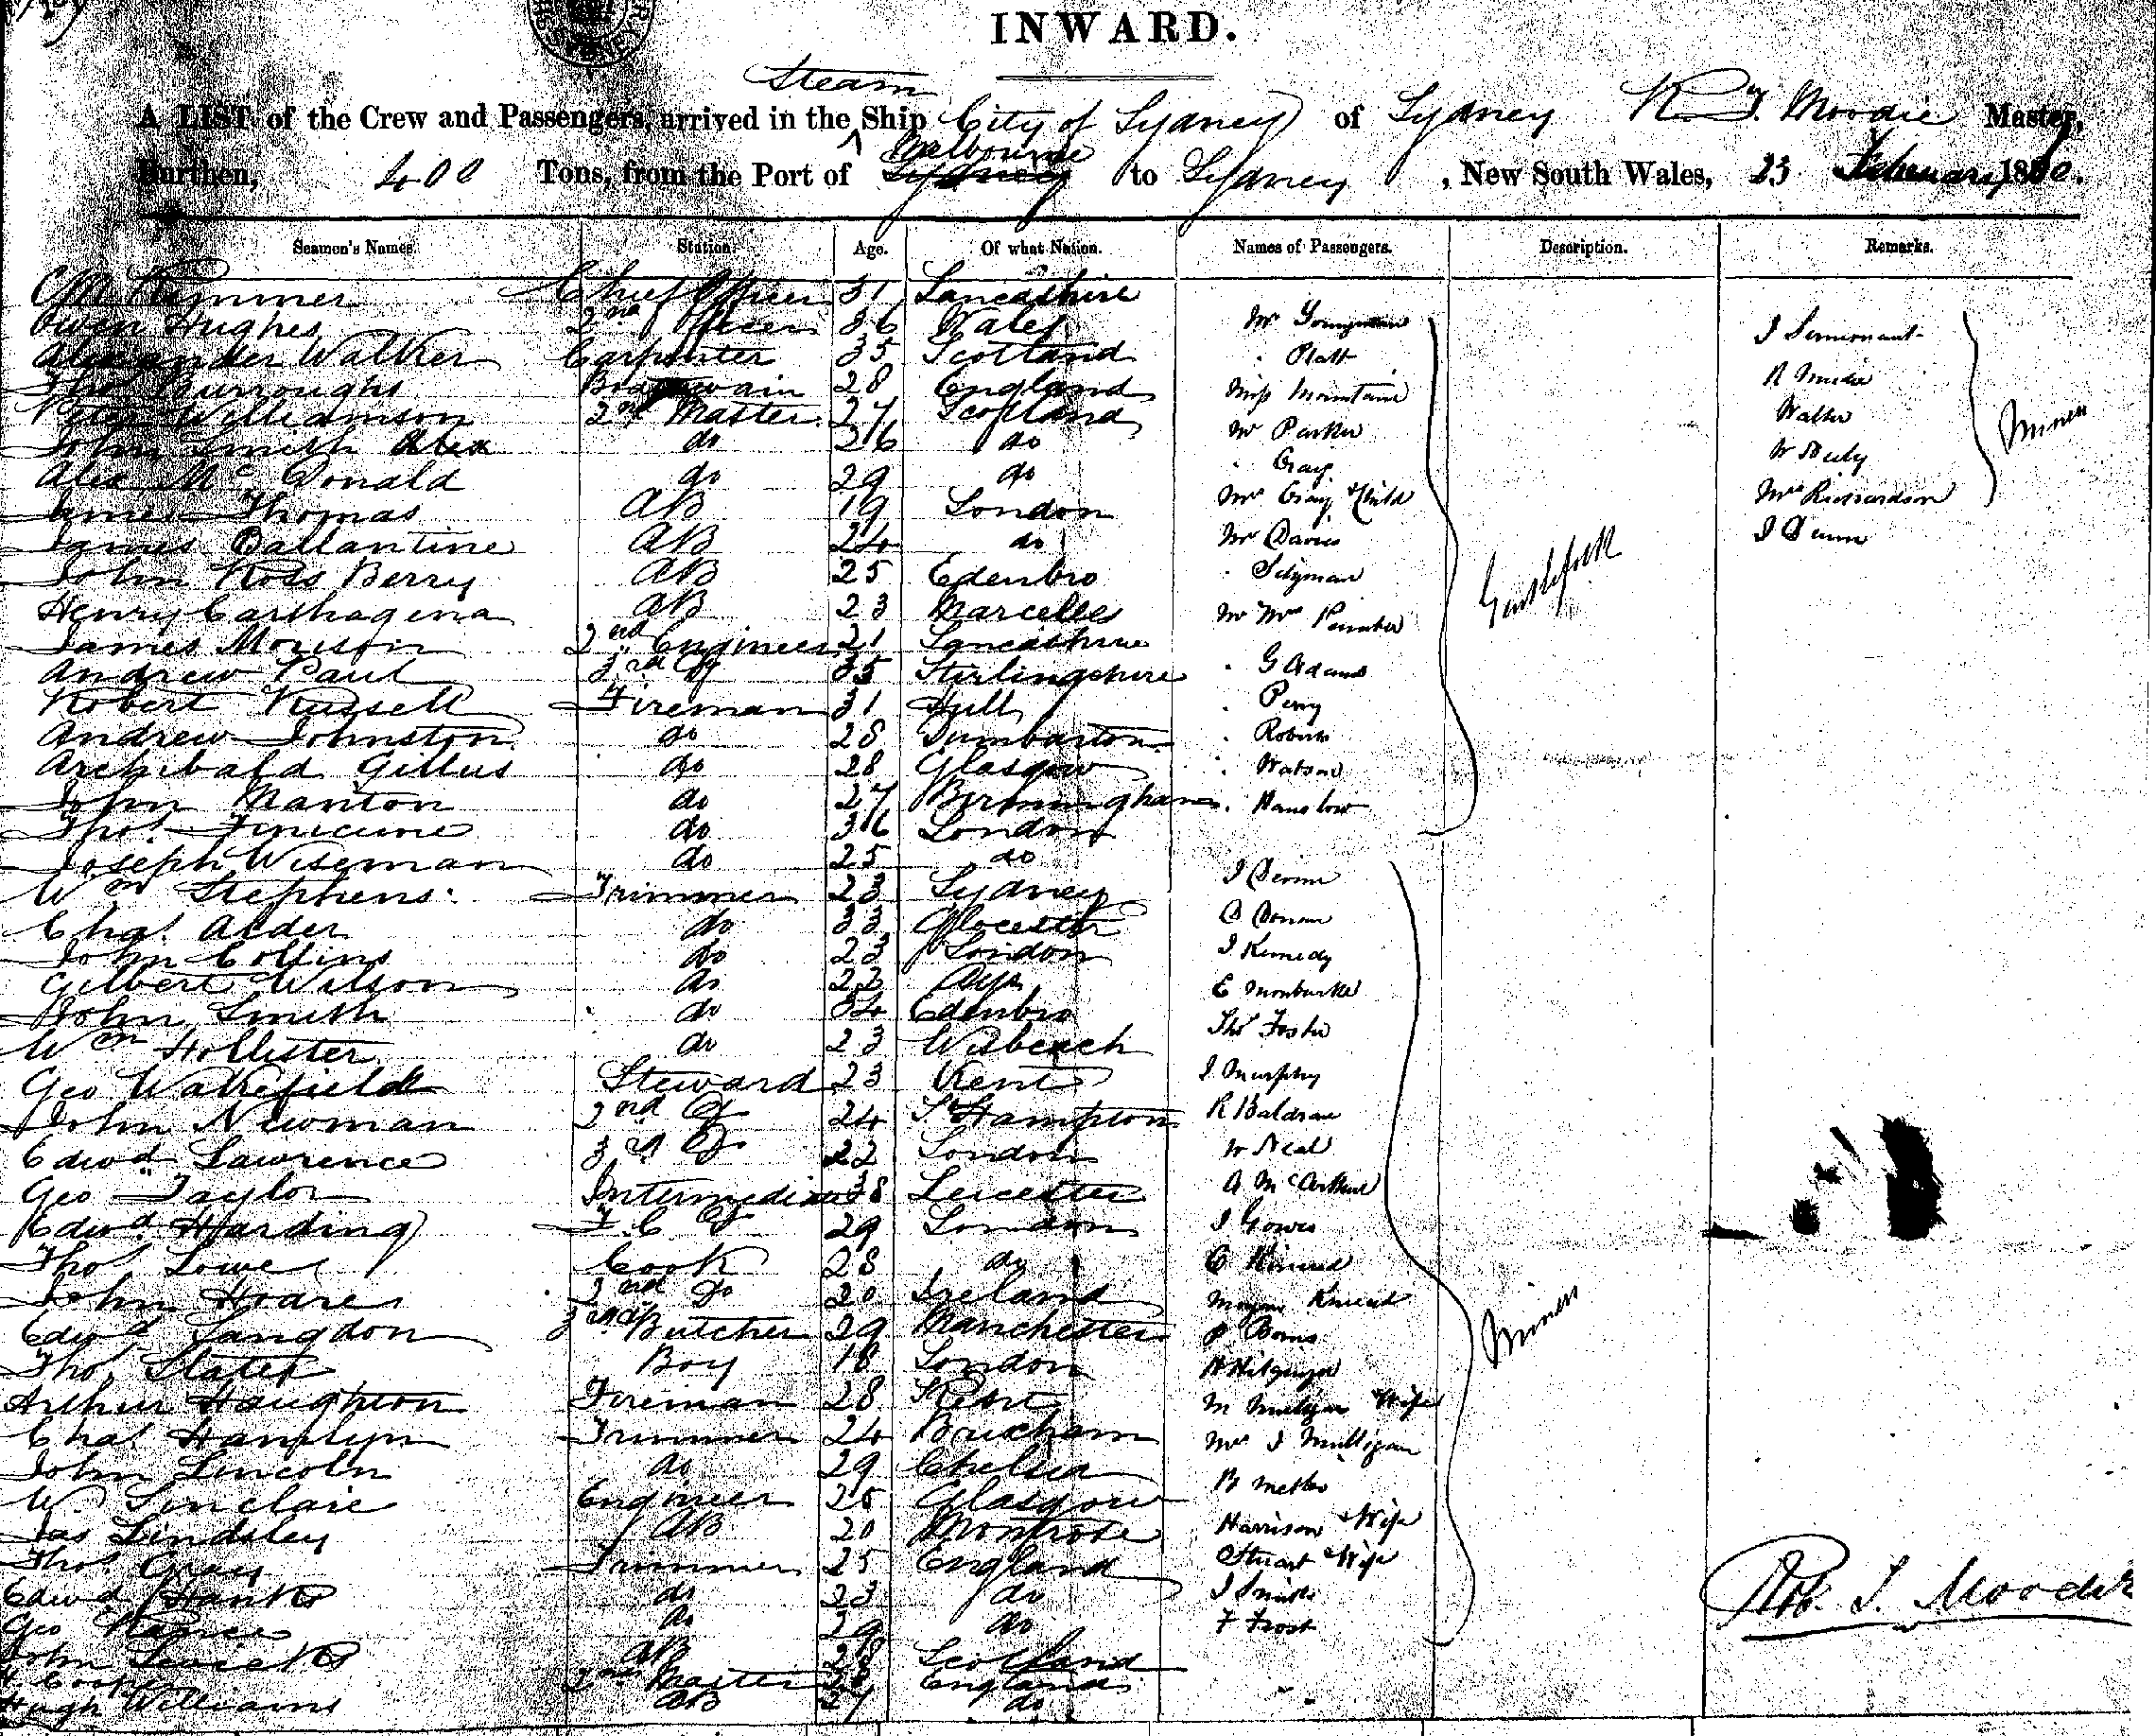 INWARD.
Steam
A LIST of the Crew and Passengers, arrived in the Ship City of Sydney of Sydney R. T. Moodie Master,
Melbourne
Burthen, 400 Tons, from the Port of Sydney to Sydney, New South Wales, 23 February 1860.
Seamen's Names. Station. Age. Of what Nation. Names of Passengers. Description. Remarks.
Chief Officer 31 Lancashire
Owen Hughes 2nd Officer 36 Wales
Alexander Walker Carpenter 35 Scotland
Thos Burroughs Boatswain 28 England
Peter Williamson 2nd Master 27 Scotland
John Smith Alex do 26 do
Alex McDonald do 29 do
James Thomas AB 19 London
James Ballantine AB 24 do
John Ross Berry AB 25 Edenbro
Henry Carthagena AB 23 Marcelles
James Morison 2nd Engineer 21 Lancashire
Andrew Paul 3rd Do 35 Stirlingshire
Robert Russell Fireman 31 Hull
Andrew Johnston do 28 Dumbarton
Archibald Gillus do 28 Glasgow
John Manton do 27 Birmingham
Thos Finucune do 36 London
Joseph Wiseman do 25 do
Wm Stephens Trimmer 23 Sydney
Chas Alder do 33 Glocester
John Collins do 23 London
Gilbert Wilson do 22 Ayr
John Smith do 34 Edenbro
Wm Hollister do 23 Wisbeach
Geo Wakefield Steward 23 Kent
John Newman 2nd Do 24 S.Hampton
Edwd Lawrence 3rd Do 22 London
Geo Taylor Intermediate 38 Leicester
Edwd Harding F. C. Do 29 London
Thos Lowe Cook 28 do
John Hoare 2nd Do 20 Ireland
Edwd Langdon 3rd & Butcher 29 Manchester
Thos Slater Boy 18 London
Arthur Haughton Fireman 28 Kent
Chas Hamlyn Trimmer 24 Brixham
John Lincoln do 29 Chelsea
W. Sinclair Engineer 25 Glasgow
Jas Lindsley AB 20 Montrose
Thos Gray Trimmer 25 England
Edwd Hanks do 23 do
Geo do 29 do
John AB 28 Scotland
H. Cook 2nd Master England
Hugh Williams AB 27 do
Mr Youngman
" Platt
Miss Mountain
Mr Parker
" Gray
Mrs Gray & Child
Mr Davies
"
Mr Mrs
" G Adams
" Perry
" Roberts
" Watson
" Hanslow
Gentlefolk
J Devine
J Kennedy
Thos Foster
J Murphy
W Neal
A McArthur
J Gower
M Mulligan & Wife
Mrs J Mulligan
Harrison & Wife
Stuart & Wife
J Smith
F Frost
Miners
Walker
Mrs Richardson
J Dunn
Miners
Rob. T. Moodie